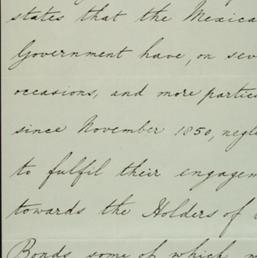 states that the Mexica
Government have, on sev
occasions, and more partic
since November 1850, negl
to fulfil their engagem
towards the Holders of
Bonds, some of which